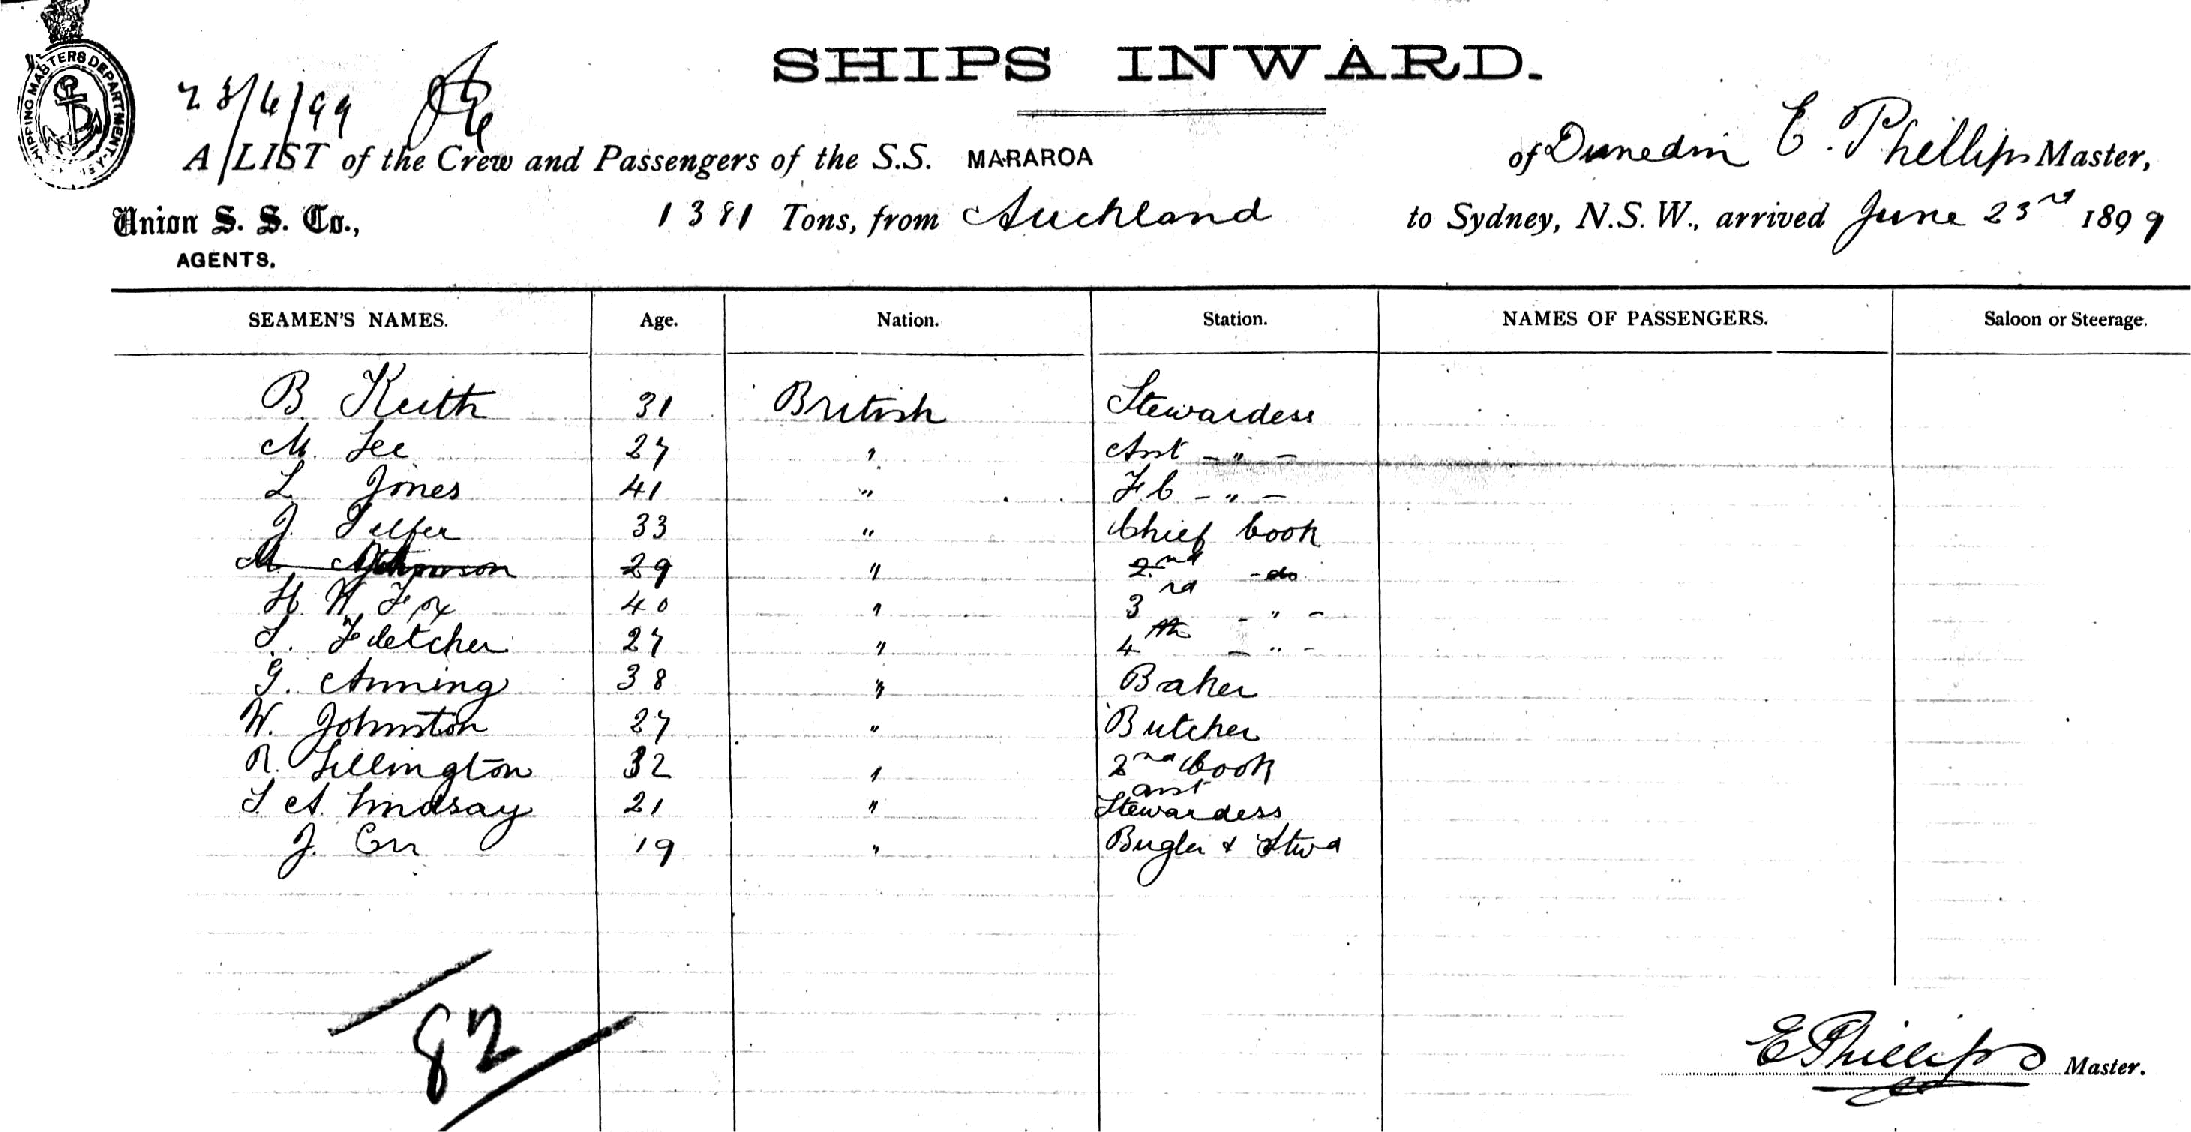 SHIPPING MASTERS DEPARTMENT
SHIPS INWARD.
23/6/99
A LIST of the Crew and Passengers of the S.S. MARAROA of Dunedin E. Phillips Master,
Union S. S. Co., 1381 Tons, from Auckland to Sydney, N.S.W., arrived June 23rd 1899
AGENTS.
SEAMEN'S NAMES. Age. Nation. Station. NAMES OF PASSENGERS. Saloon or Steerage.
B. Keith 31 British Stewardess
M. Lee 27 " Asst - " -
L Jones 41 " F.C - " -
J Telfer 33 " Chief Cook
M 29 " 2nd - do
H. W. Fox 40 " 3rd - " -
T. Fletcher 27 " 4th - " -
G. Anning 38 " Baker
W. Johnston 27 " Butcher
R. Lillington 32 " 2nd Cook
L A. Lindsay 21 " asst Stewardess
J. Orr 19 " Bugler & Stwd
82
E Phillips Master.